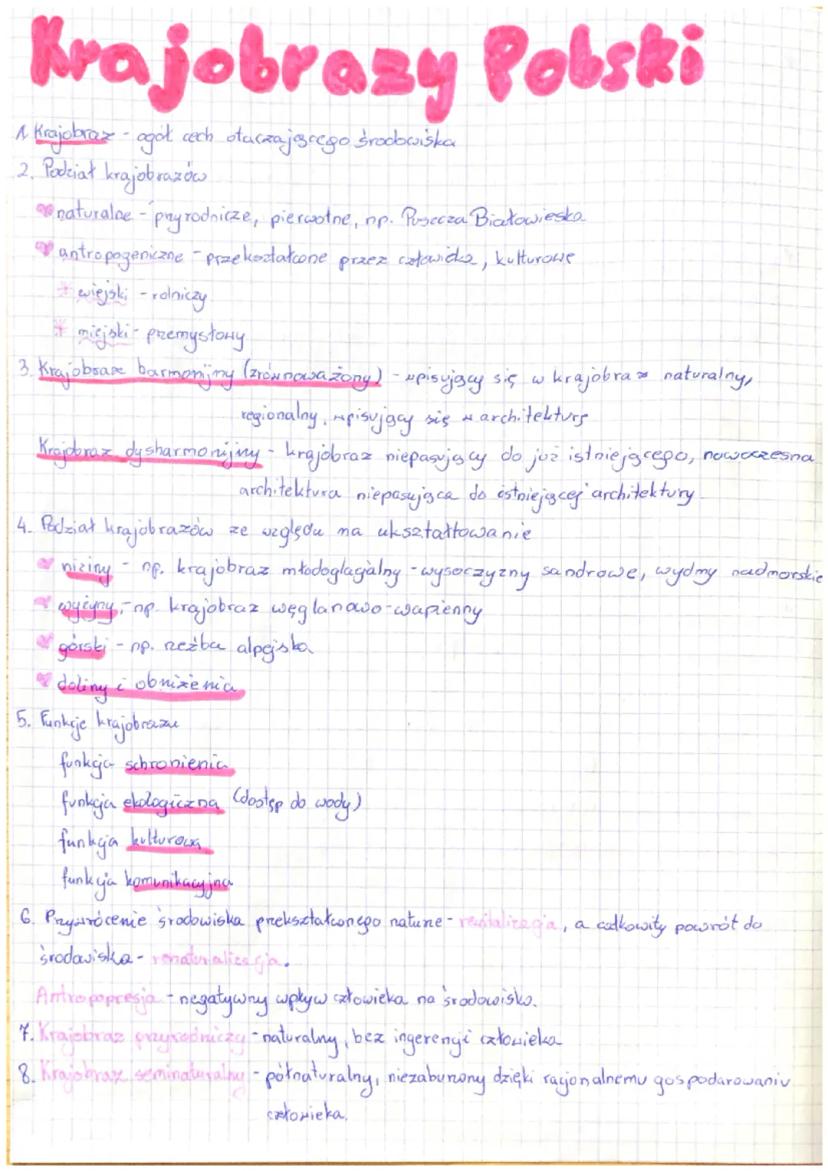 Krajobrazy Polski
1. Krajobraz - ogół cech otaczającego środowiska
2. Podział krajobrazów
naturalne - przyrodnicze, pierwotne, np. Puszcza Białowieska
antropogeniczne - przekształcone przez człowieka, kulturowe
wiejski - rolniczy
miejski - przemysłowy
3. Krajobraz harmonijny (zrównoważony) - wpisujący się w krajobraz naturalny,
regionalny, wpisujący się w architekturę
Krajobraz dysharmonijny - krajobraz niepasujący do już istniejącego, nowoczesna
architektura niepasująca do istniejącej architektury
4. Podział krajobrazów ze względu na ukształtowanie
niziny - np. krajobraz młodoglacjalny - wysoczyzny sandrowe, wydmy nadmorskie
wyżyny - np. krajobraz węglanowo-wapienny
górski - np. rzeźba alpejska
doliny i obniżenia
5. Funkcje krajobrazu
funkcja schronienia
funkcja ekologiczna (dostęp do wody)
funkcja kulturowa
funkcja komunikacyjna
6. Przywrócenie środowiska przekształconego naturze - rewitalizacja, a całkowity powrót do
środowiska - renaturalizacja.
Antropopresja - negatywny wpływ człowieka na środowisko.
7. Krajobraz przyrodniczy - naturalny, bez ingerencji człowieka
8. Krajobraz seminaturalny - półnaturalny, niezaburzony dzięki racjonalnemu gospodarowaniu
człowieka.